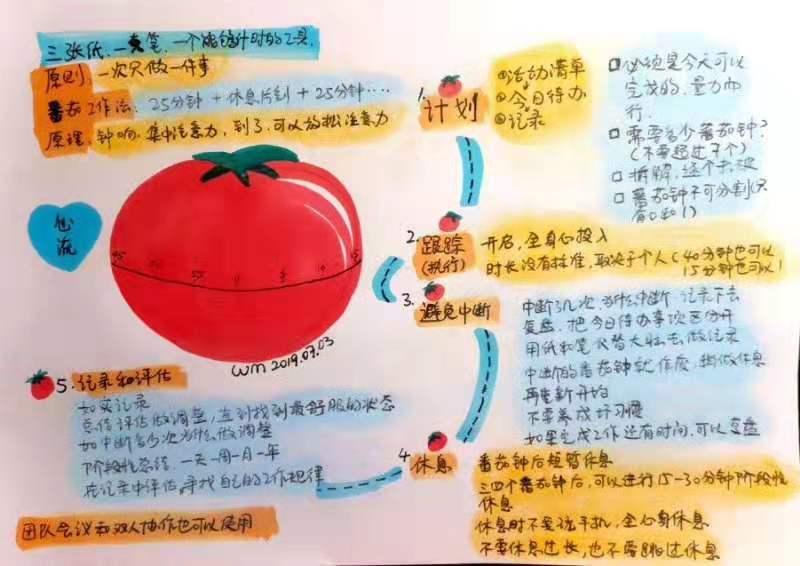 三张纸、一支笔、一个能够计时的工具.
原则: 一次只做一件事
番茄工作法: 25分钟 + 休息片刻 + 25分钟...
原理: 钟响. 集中注意力, 到了. 可以放松注意力
心流
WM 2019.07.03
1. 计划
①活动清单
②今日待办
③记录
必须是今天可以
完成的、量力而
行.
需要多少番茄钟?
(不要超过7个)
拆解, 逐个击破
番茄钟不可分割(只
有0和1)
2. 跟踪
(执行)
开启, 全身心投入
时长没有标准, 取决于个人(40分钟也可以
15分钟也可以)
3. 避免中断
中断了几次, 为什么中断 记录下去
复盘, 把今日待办事项区分开
用纸和笔代替大脑去做记录
中断的番茄钟就作废, 稍做休息
再重新开始
不要养成坏习惯
如果完成工作还有时间, 可以复盘
4. 休息
番茄钟后短暂休息
三四个番茄钟后, 可以进行15-30分钟阶段性
休息
休息时不要玩手机, 全心身休息
不要休息过长, 也不要跳过休息
5. 记录和评估
如实记录
总结评估做调整, 直到找到最舒服的状态
如中断多少次为什么, 做调整
阶段性总结 一天一周一月一年
在记录中评估, 寻找自己的工作规律
团队会议和双人协作也可以使用